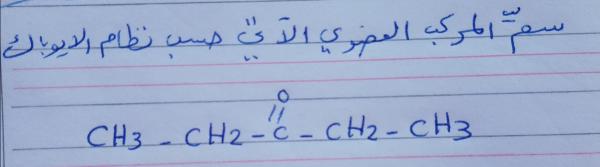 سمِّ المركب العضوي الآتي حسب نظام الايوباك
O
//
CH3 - CH2 - C - CH2 - CH3